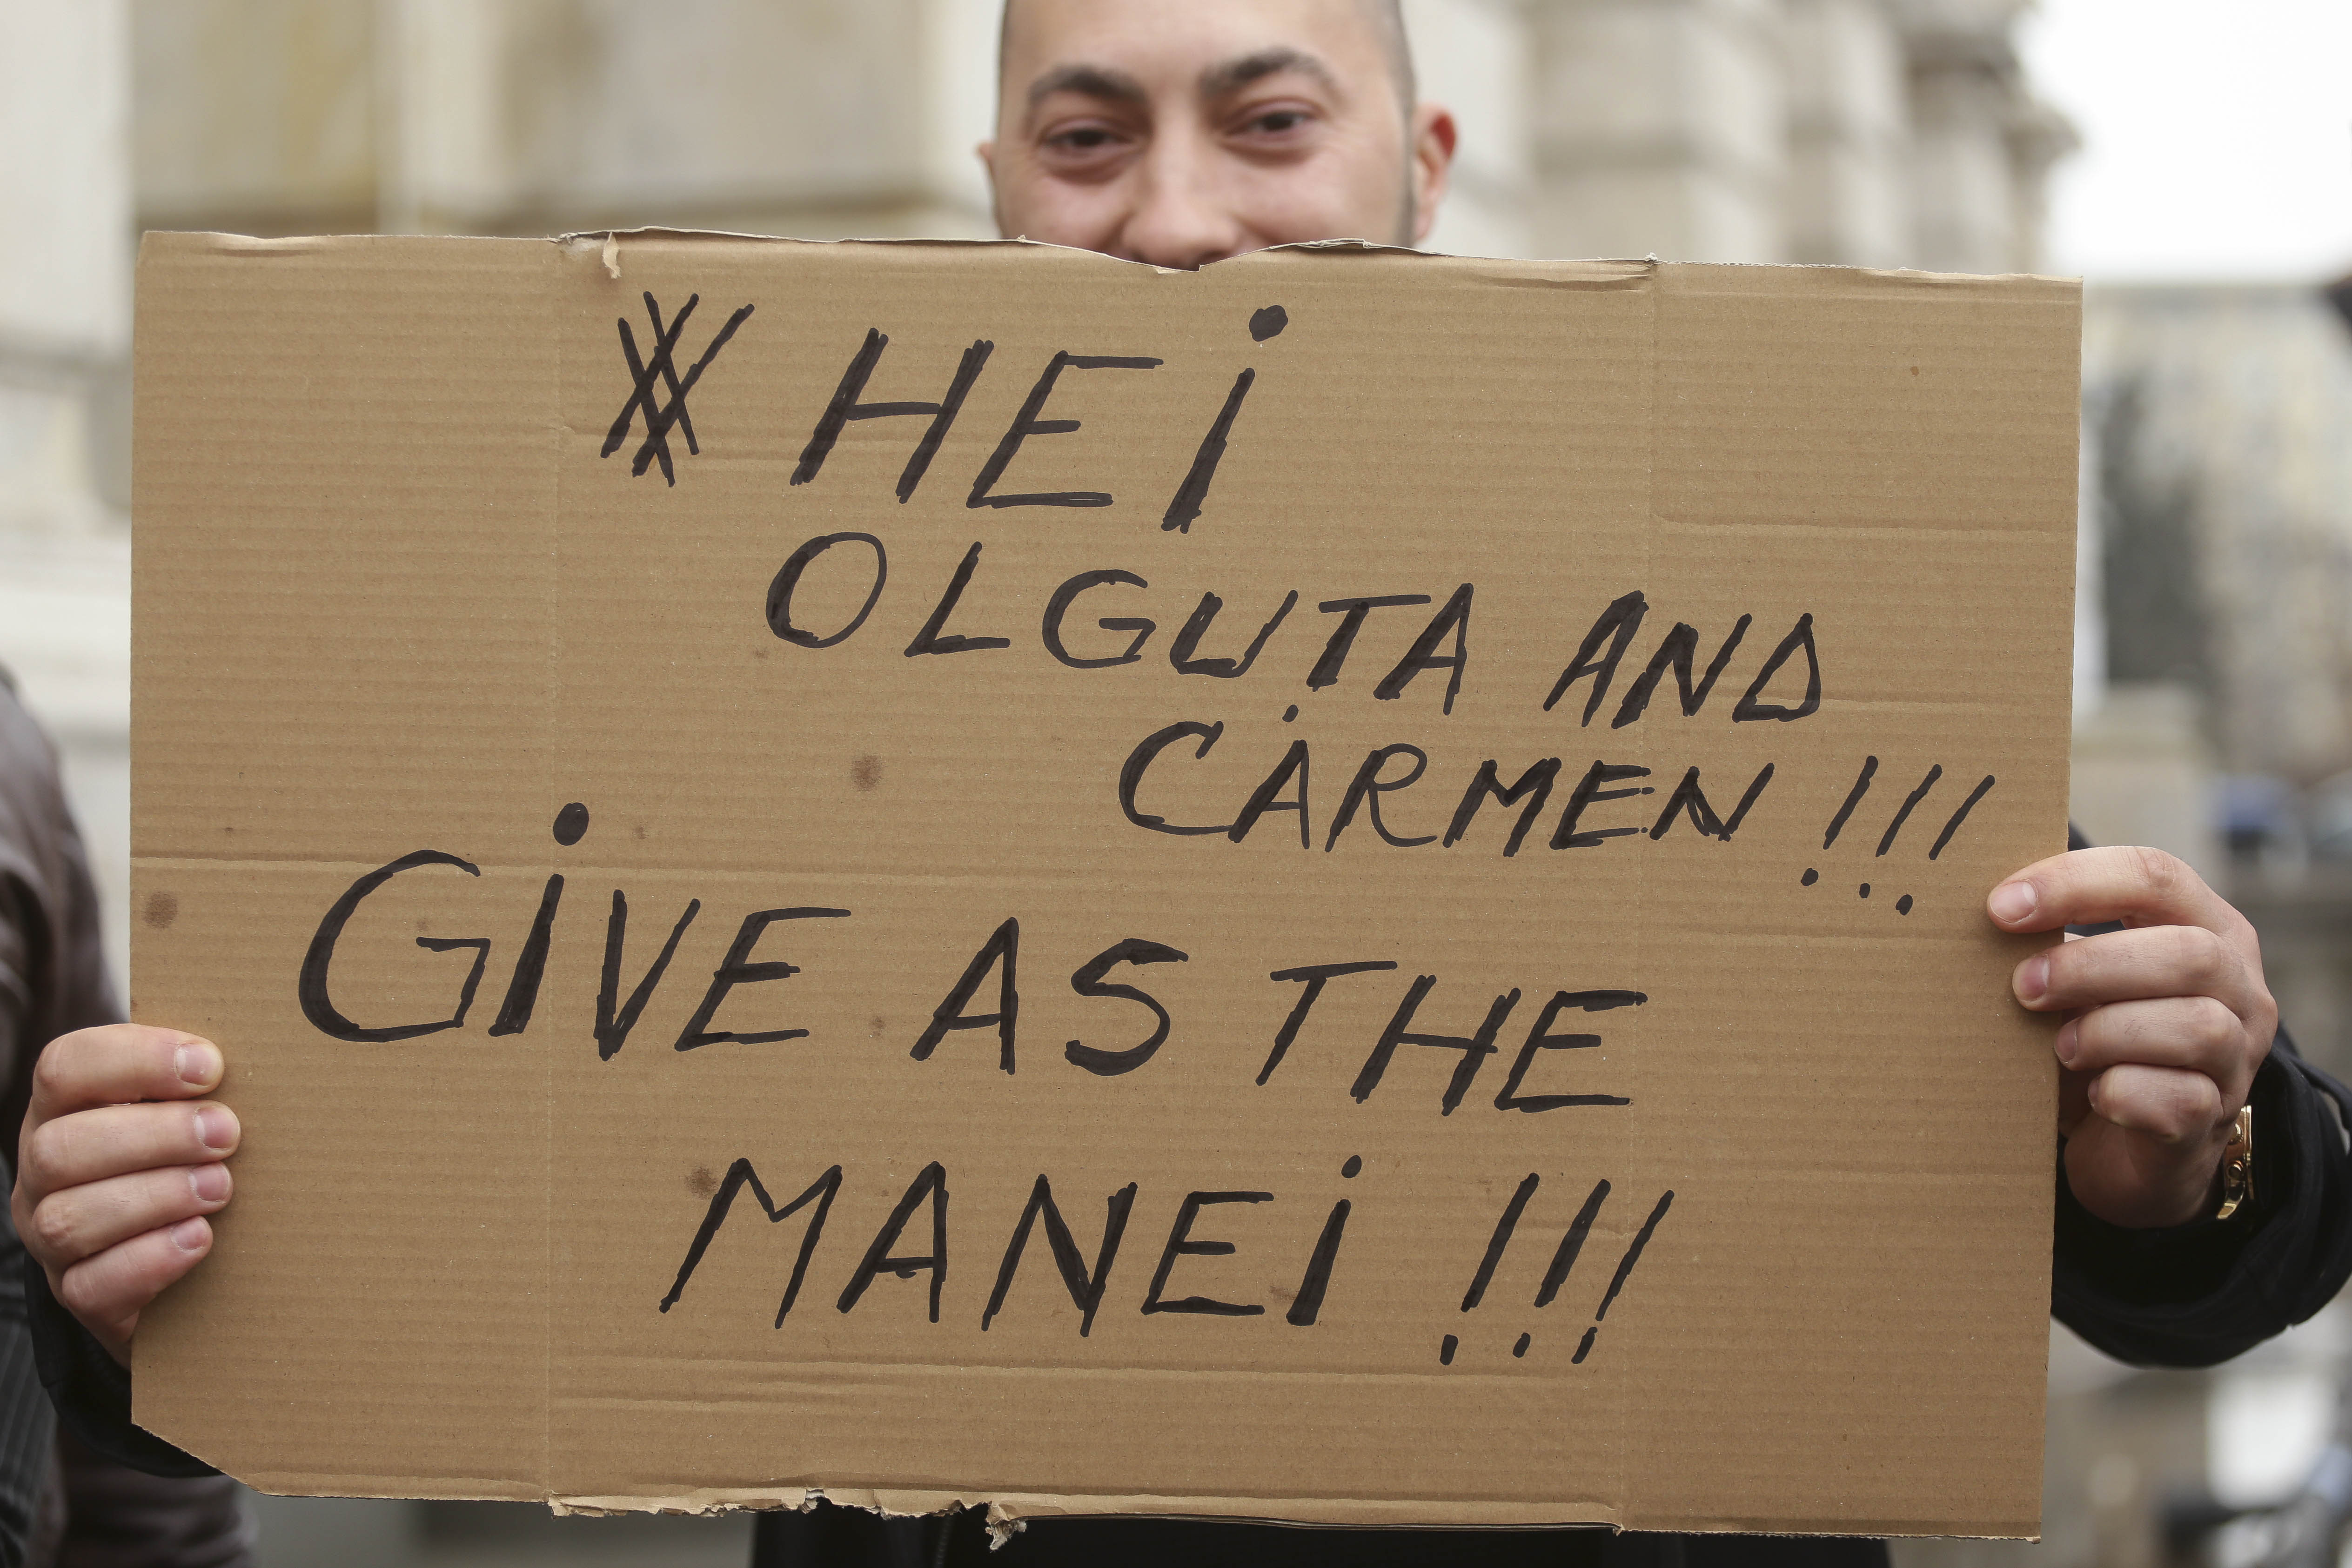 HEi
OLGUTA AND
CARMEN !!!
GiVE AS THE
MANEi !!!